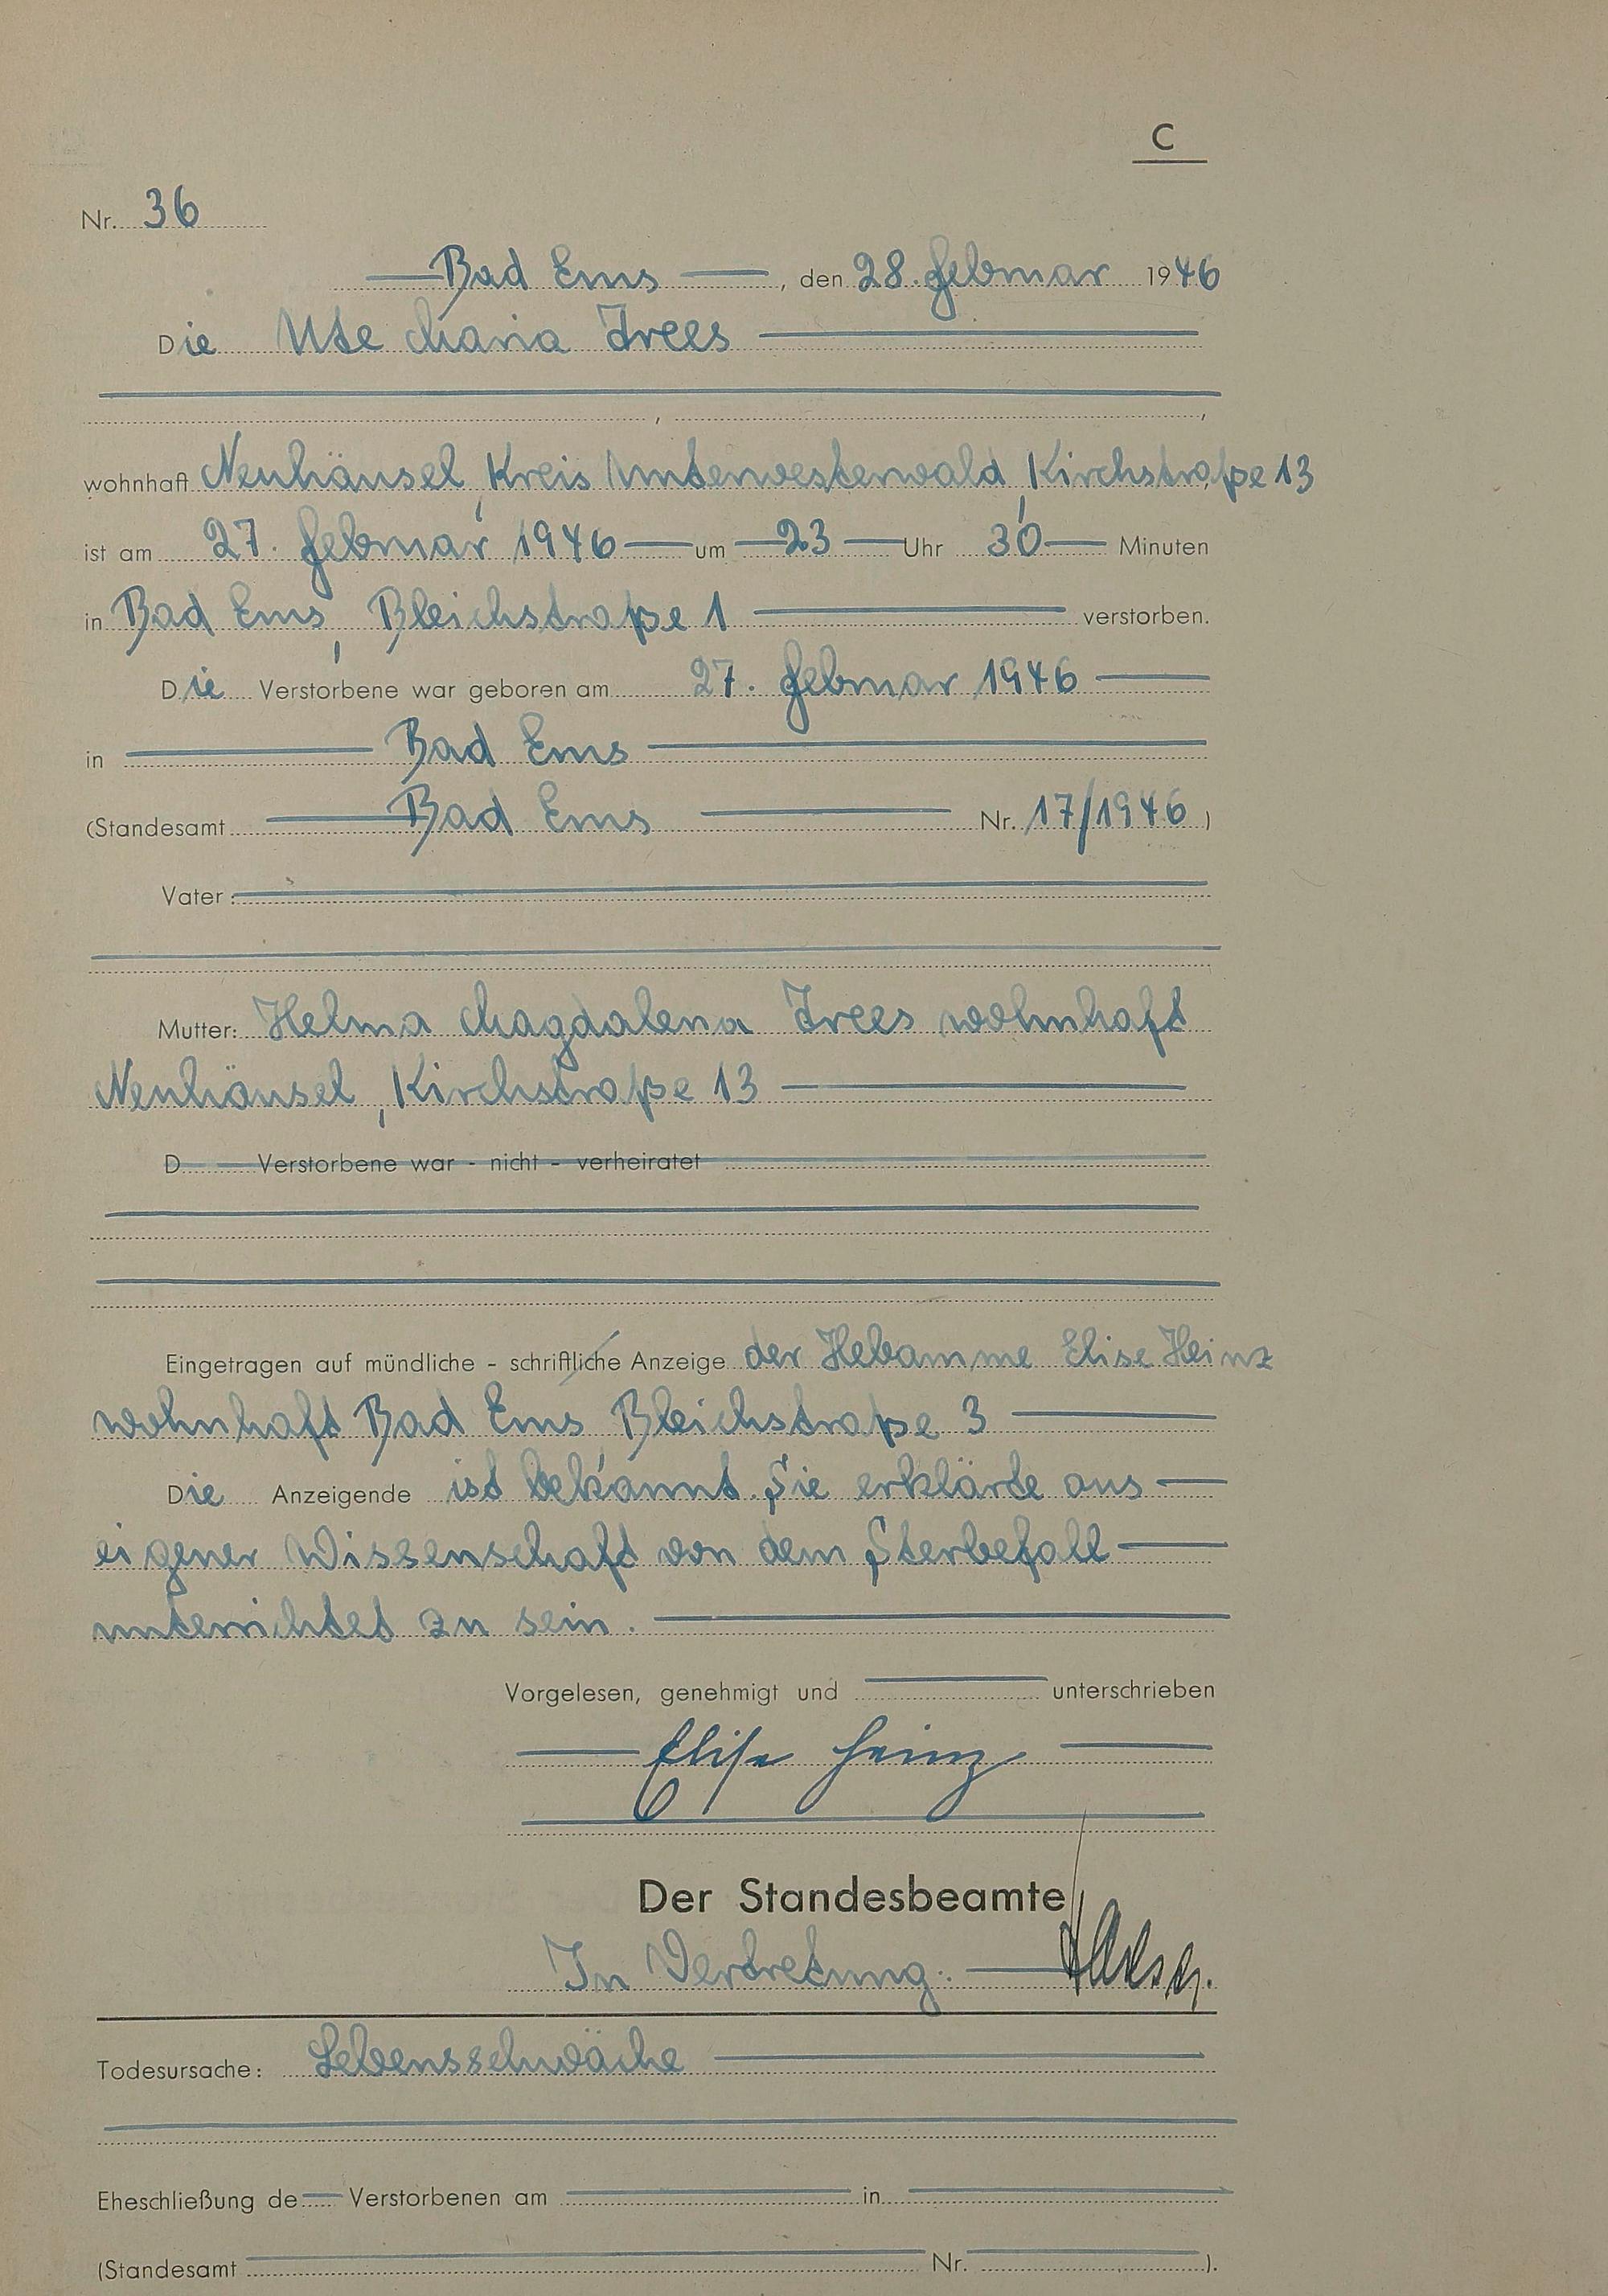 C
Nr. 36
Bad Ems, den 28. Februar 1946
Die Ute Maria Trees
, ,
wohnhaft Neuhäusel, Kreis Unterwesterwald, Kirchstraße 13
ist am 27. Februar 1946 um 23 Uhr 30 Minuten
in Bad Ems, Bleichstraße 1 verstorben.
Die Verstorbene war geboren am 27. Februar 1946
in Bad Ems
(Standesamt Bad Ems Nr. 17/1946)
Vater:
Mutter: Helma Magdalena Trees wohnhaft
Neuhäusel, Kirchstraße 13
D Verstorbene war - nicht - verheiratet
Eingetragen auf mündliche - schriftliche Anzeige der Hebamme Elise Heinz
wohnhaft Bad Ems Bleichstraße 3
Die Anzeigende ist bekannt. Sie erklärte aus
eigener Wissenschaft von dem Sterbefall
unterrichtet zu sein.
Vorgelesen, genehmigt und unterschrieben
Elise Heinz
Der Standesbeamte
In Vertretung:
Todesursache: Lebensschwäche
Eheschließung de Verstorbenen am in
(Standesamt Nr. ).